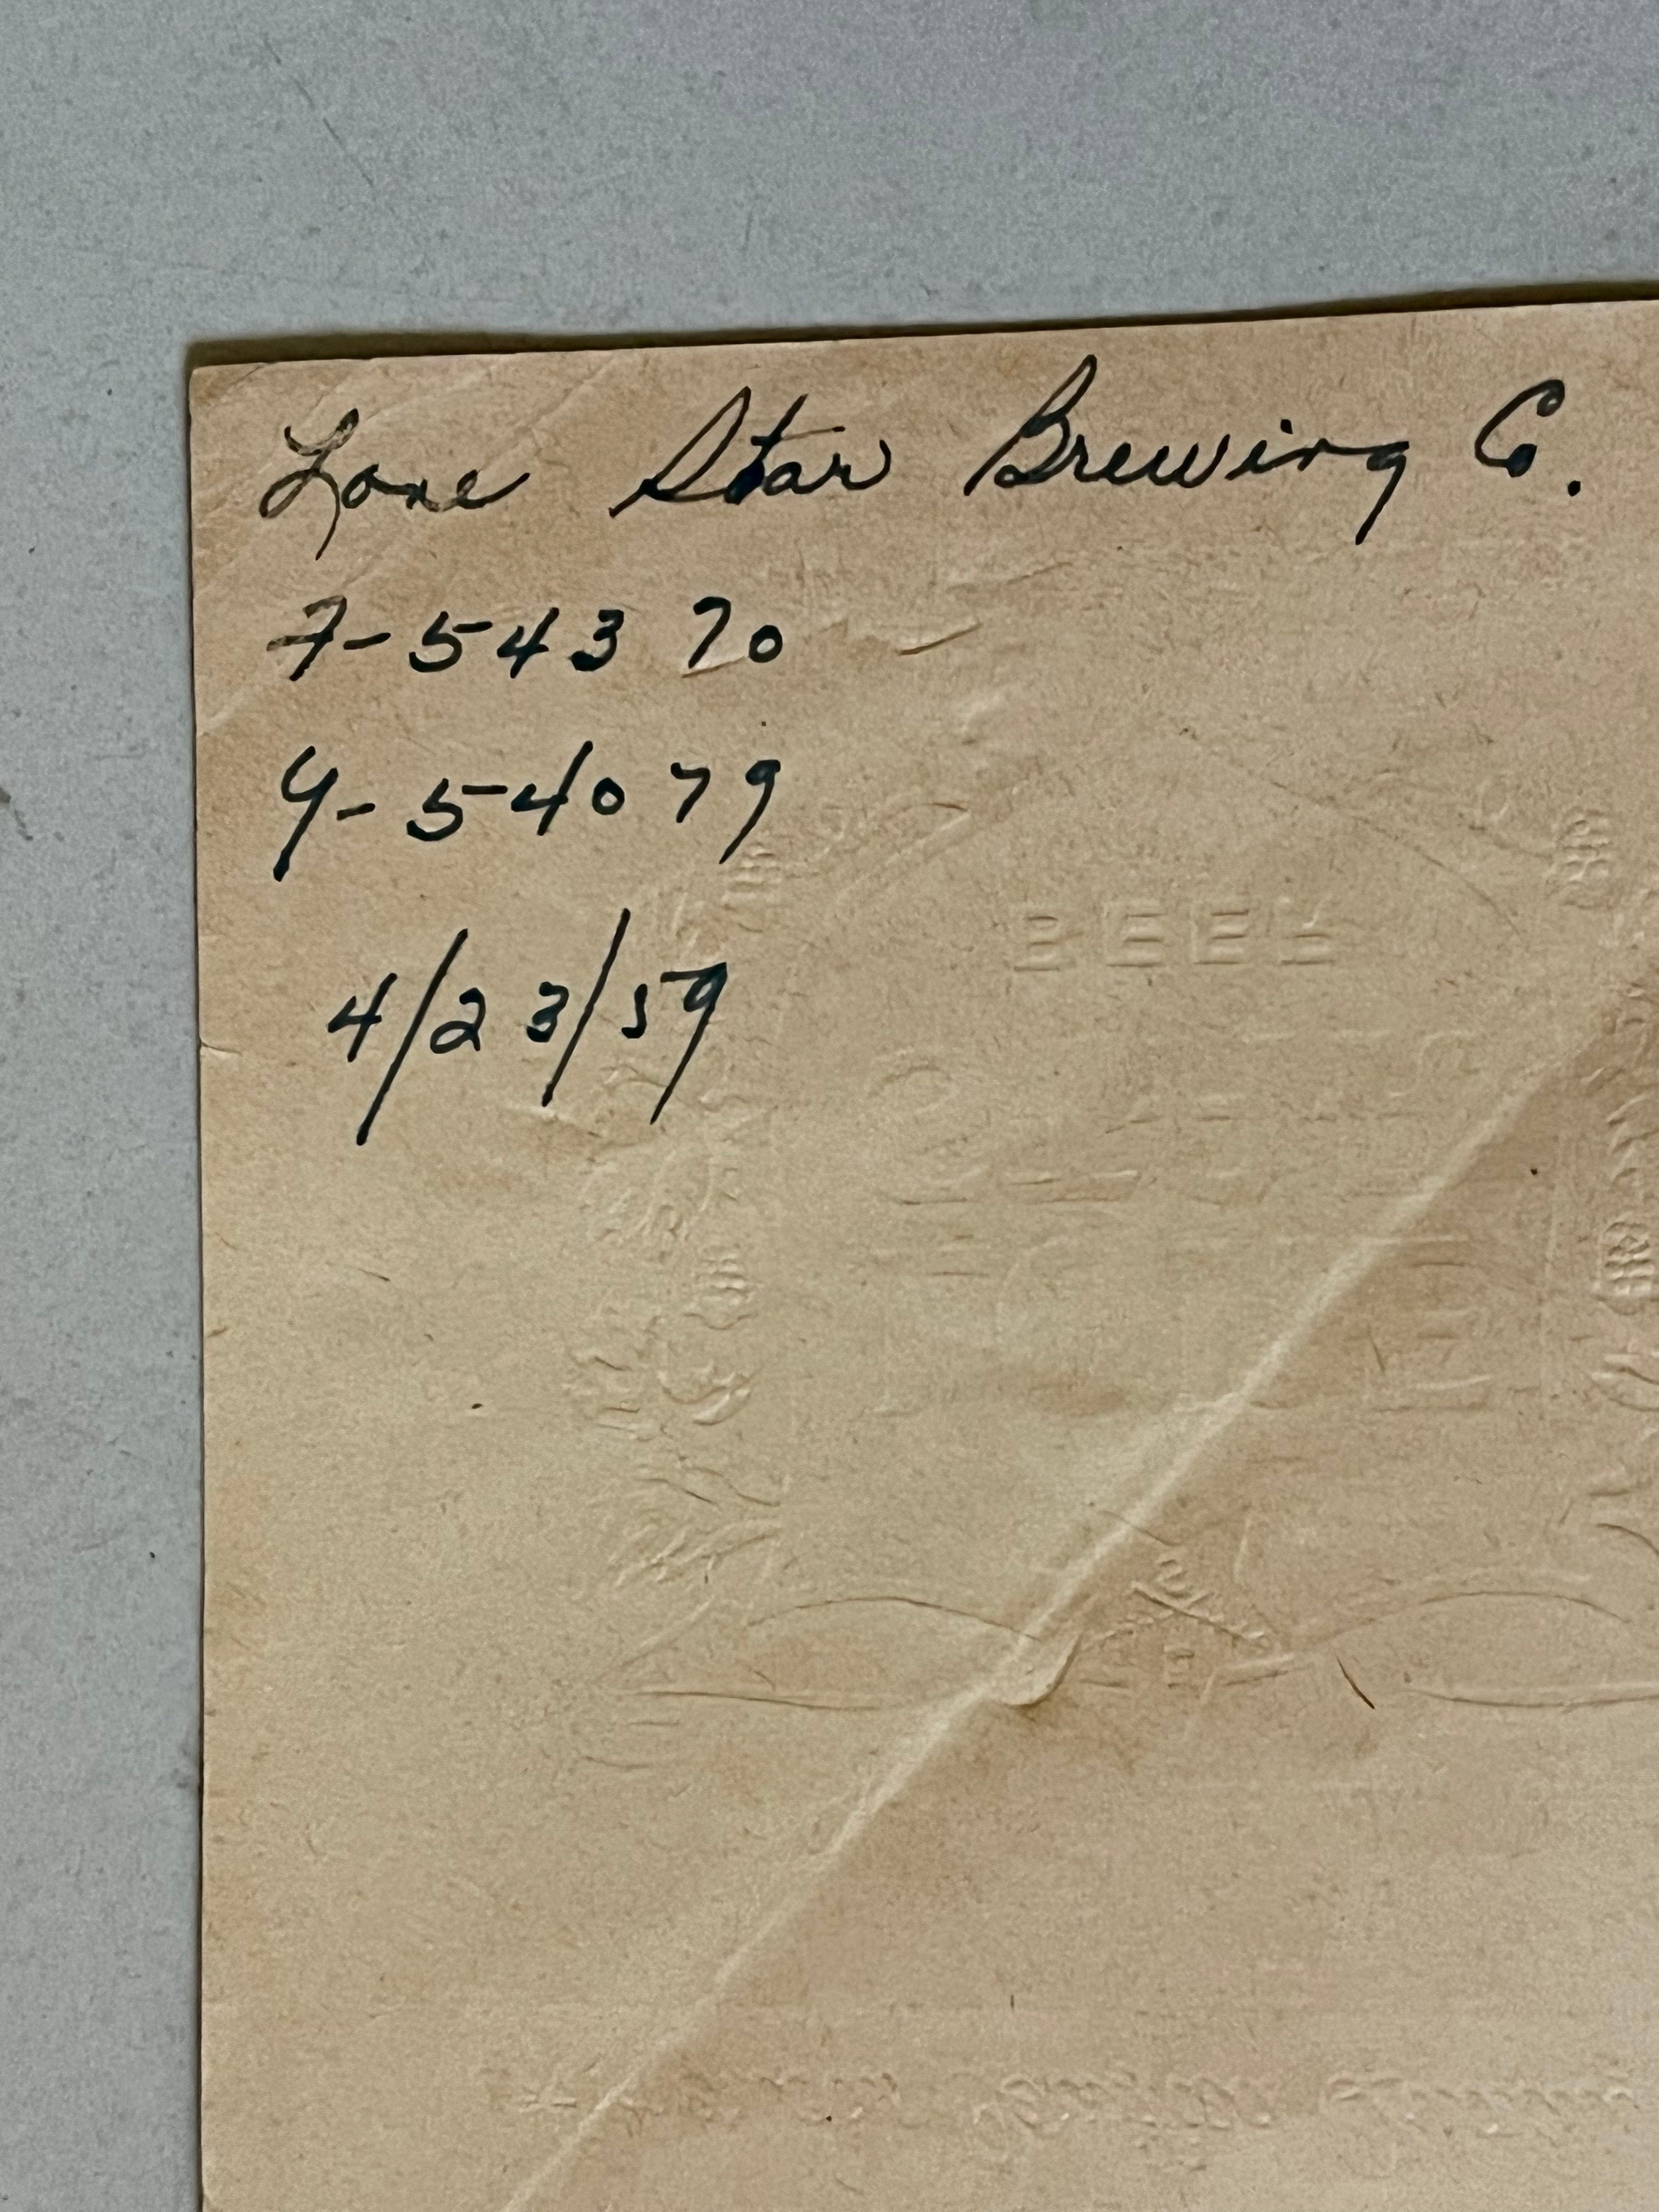 Lone Star Brewing Co.
7-54370
4-54079
4/23/59
BEER